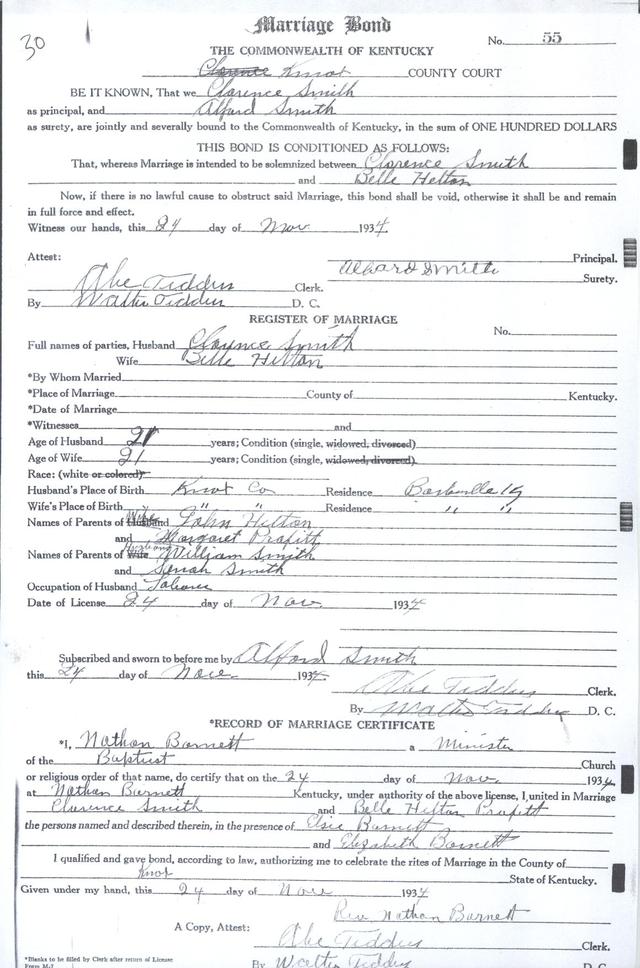 30
Marriage Bond
No. 55
THE COMMONWEALTH OF KENTUCKY
Clarence Knox COUNTY COURT
BE IT KNOWN, That we Clarence Smith
as principal, and Alford Smith
as surety, are jointly and severally bound to the Commonwealth of Kentucky, in the sum of ONE HUNDRED DOLLARS
THIS BOND IS CONDITIONED AS FOLLOWS:
That, whereas Marriage is intended to be solemnized between Clorence Smith
and Belle Helton
Now, if there is no lawful cause to obstruct said Marriage, this bond shall be void, otherwise it shall be and remain
in full force and effect.
Witness our hands, this 24 day of Nov 1934.
Attest: Principal.
Albard Smith Surety.
Abe Tiddus Clerk.
By Walter Tiddus D. C.
REGISTER OF MARRIAGE
No.
Full names of parties, Husband Clarence Smith
Wife Belle Helton
*By Whom Married
*Place of Marriage County of Kentucky.
*Date of Marriage
*Witnesses and
Age of Husband 21 years; Condition (single, widowed, divorced)
Age of Wife 21 years; Condition (single, widowed, divorced)
Race: (white or colored)
Husband's Place of Birth Knox Co Residence Barbville Ky
Wife's Place of Birth " " Residence " "
Names of Parents of Husband Wife John Hilton
and Margaret Prafitt
Names of Parents of Wife Husband William Smith
and Smith
Occupation of Husband
Date of License 24 day of Nov. 1934
Subscribed and sworn to before me by Alford Smith
this 24 day of Nov 1934
Abe Tiddus Clerk.
By Walter Tiddus D. C.
*RECORD OF MARRIAGE CERTIFICATE
*I, Nathan Barnett a Minister
of the Baptist Church
or religious order of that name, do certify that on the 24 day of Nov 1934
at Nathan Barnett Kentucky, under authority of the above license, I united in Marriage
Clarence Smith and Belle Helton Prafitt
the persons named and described therein, in the presence of Elsie Barnett
and Elizabeth Barnett
I qualified and gave bond, according to law, authorizing me to celebrate the rites of Marriage in the County of
Knox State of Kentucky.
Given under my hand, this 24 day of Nov 1934
Rev Nathan Barnett
A Copy, Attest: Abe Tiddus Clerk.
*Blanks to be filled by Clerk after return of License
Form M-7 By Walter Tiddus D. C.